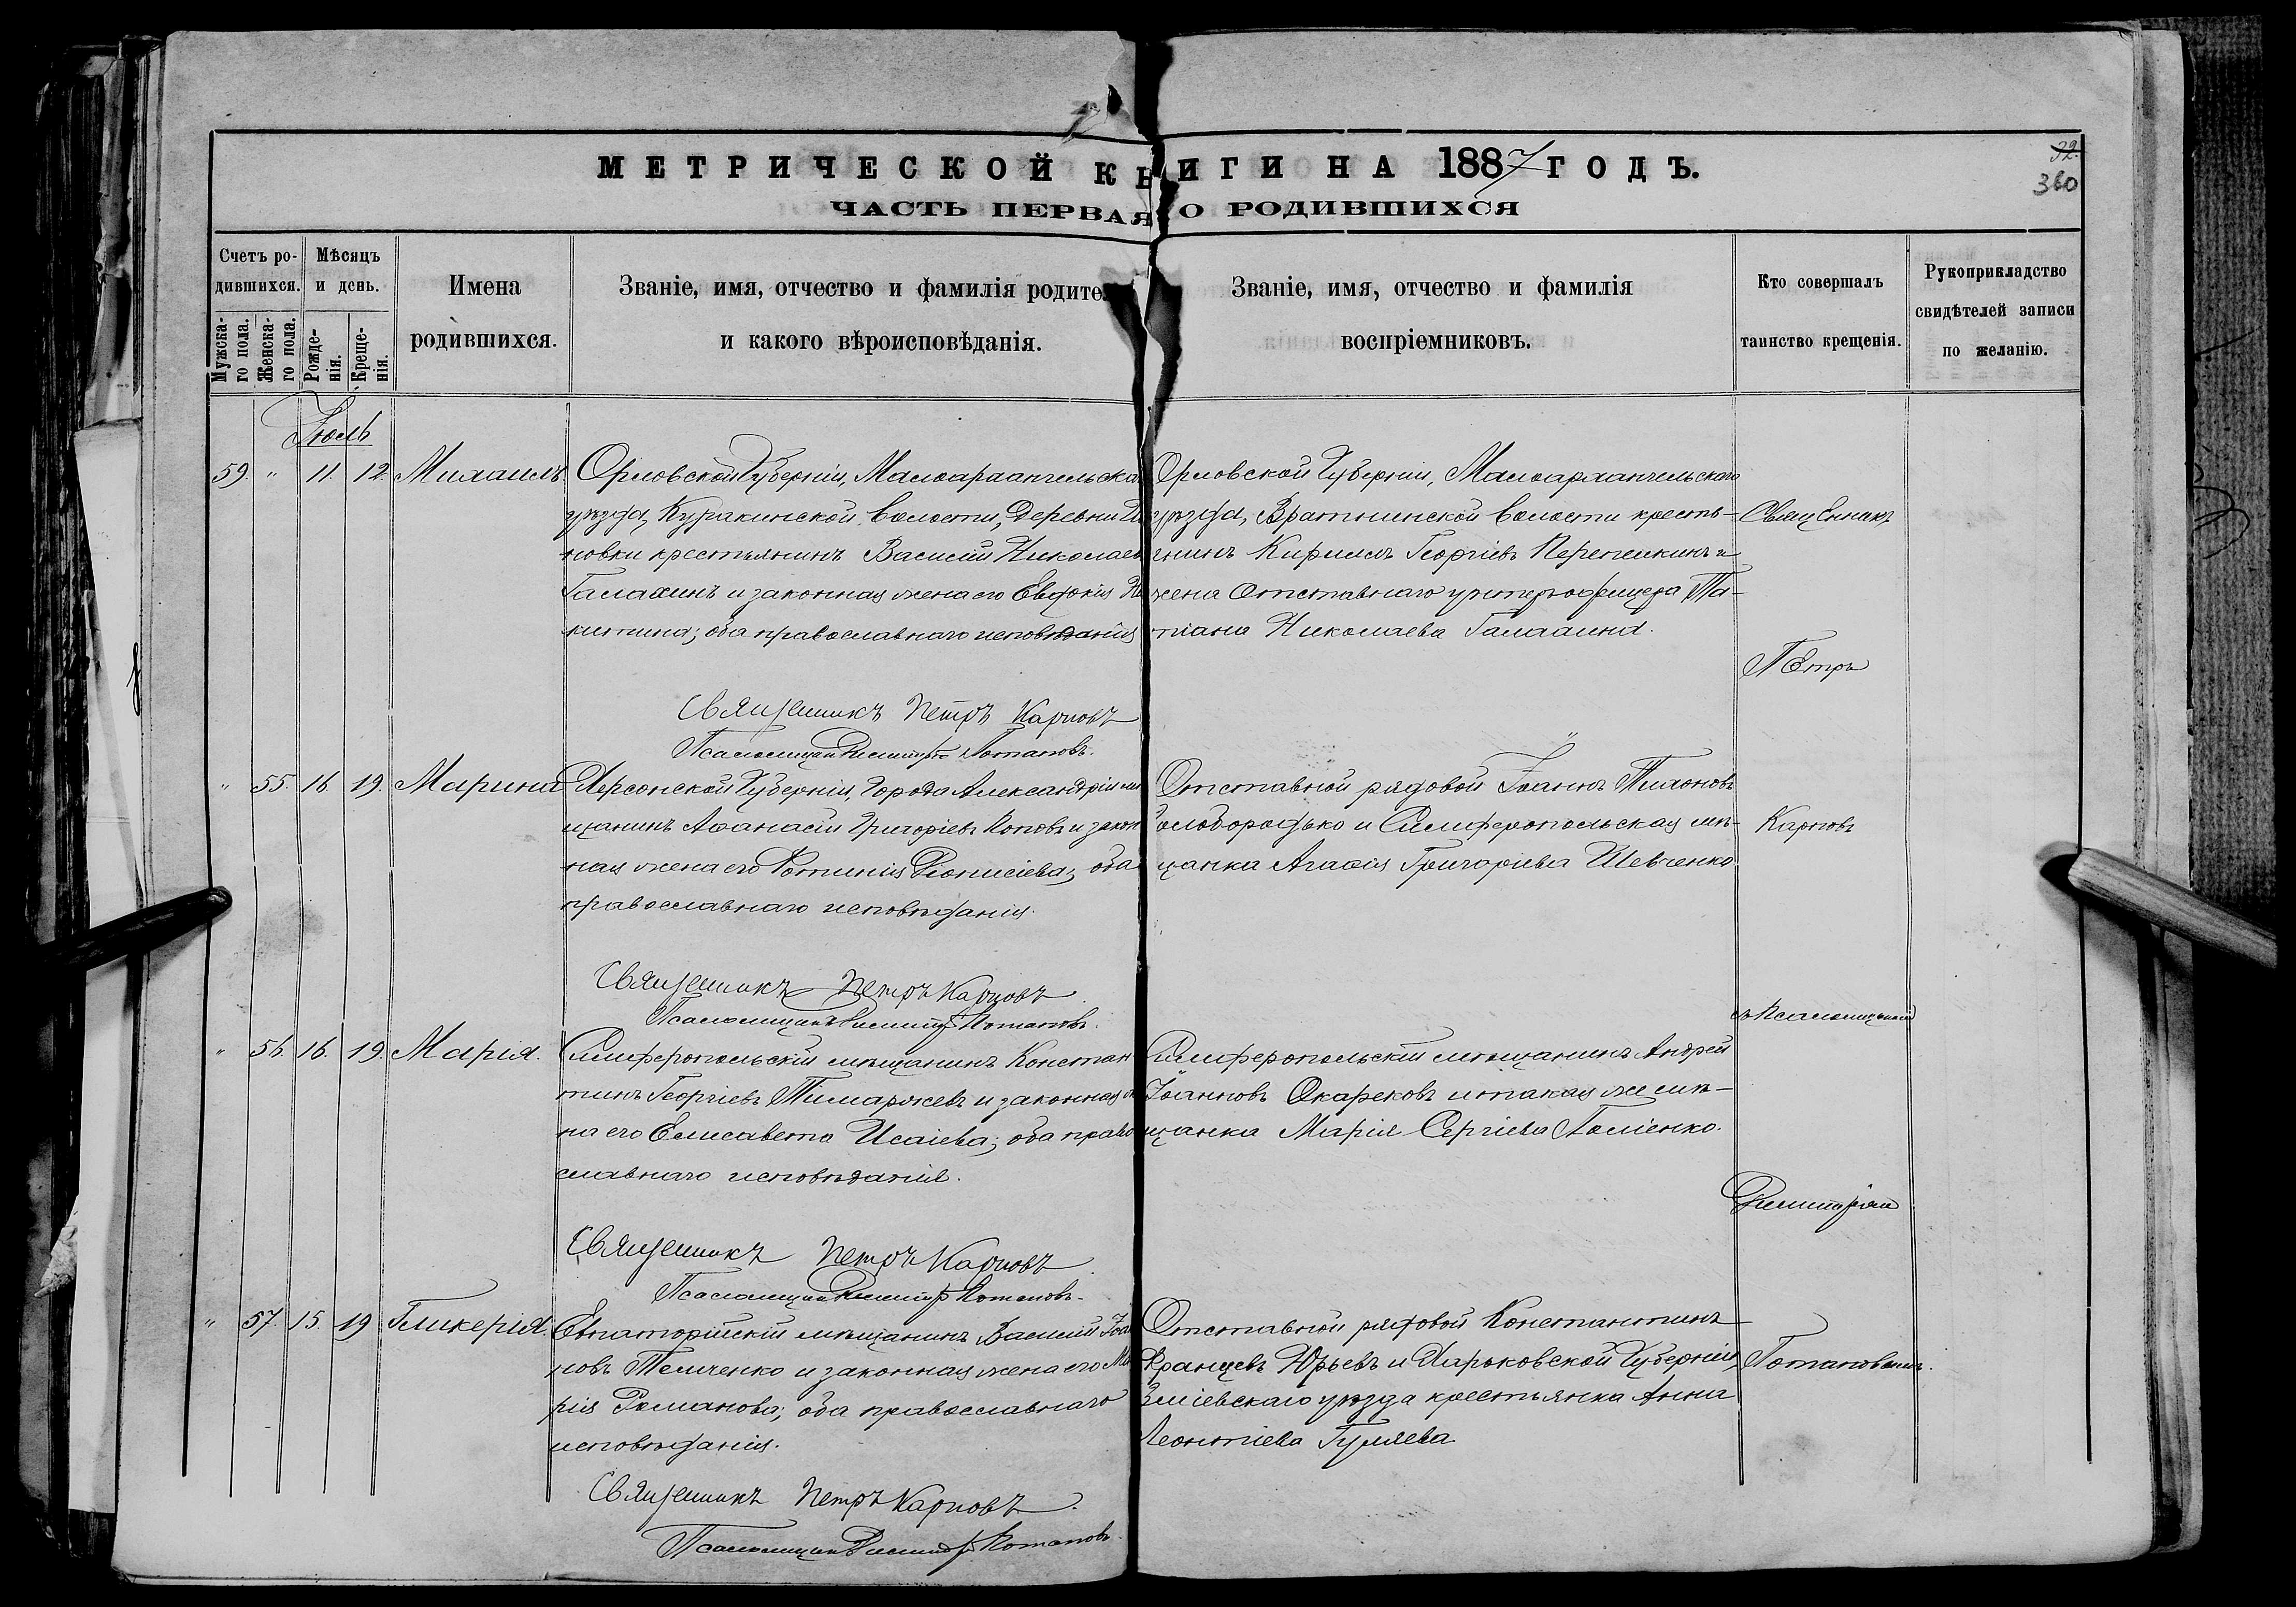 МЕТРИЧЕСКОЙ КНИГИ НА 1887 ГОДЪ.
32.
360
ЧАСТЬ ПЕРВАЯ О РОДИВШИХСЯ
Счетъ родившихся.
Мужскаго пола.
Женскаго пола.
Мѣсяцъ и день.
Рожденія.
Крещенія.
Имена родившихся.
Званіе, имя, отчество и фамилія родите
и какого вѣроисповѣданія.
Званіе, имя, отчество и фамилія
воспріемниковъ.
Кто совершалъ
таинство крещенія.
Рукоприкладство
свидѣтелей записи
по желанію.
Іюль
59. " 11. 12. Михаилъ.
Орловской Губерніи, Малоархангельска
уѣзда, Куракинской волости, деревни
новки крестьянинъ Василій Николаев
Галахинъ и законная жена его Евдокія Ни
китина; оба православнаго исповѣданія
Священникъ Петръ Карповъ
Псаломщикъ Димитрій Потаповъ.
Орловской Губерніи, Малоархангельскаго
уѣзда, Вратнинской волости кресть-
янинъ Кириллъ Георгіевъ Перепелкинъ и
жена Отставнаго унтеръ-офицера Та-
тіана Николаева Галахина.
Священникъ
Петръ
Карповъ
съ Псаломщикомъ
Димитріемъ
Потаповымъ.
" 55. 16 19. Марина
Херсонской Губерніи, Города Александріи мѣ
щанинъ Аѳанасій Григоріевъ Поповъ и закон
ная жена его Фотинія Діонисіева; оба
православнаго исповѣданія.
Священникъ Петръ Карповъ
Псаломщикъ Димитрій Потаповъ.
Отставной рядовой Іоаннъ Тихоновъ
олобородько и Симферопольская мѣ-
щанка Агаѳія Григоріева Шевченко.
" 56. 16. 19. Марія.
Симферопольскій мѣщанинъ Констан
тинъ Георгіевъ Тимаржевъ и законная же
на его Елисавета Исаіева; оба право
славнаго исповѣданія.
Священникъ Петръ Карповъ
Псаломщикъ Димитрій Потаповъ.
Симферопольскій мѣщанинъ Андрей
Іоанновъ Окарековъ и такая же мѣ-
щанка Марія Сергіева Поліенко.
" 57. 15. 19 Гликерія.
Евпаторійскій мѣщанинъ Василій Іоан
новъ Теличенко и законная жена его Ма
рія Романова; оба православнаго
исповѣданія.
Священникъ Петръ Карповъ.
Псаломщикъ Димитрій Потаповъ.
Отставной рядовой Константинъ
Францевъ Юрьевъ и Харьковской Губерніи,
Зміевскаго уѣзда крестьянка Анна
Леонтіева Гуляева.